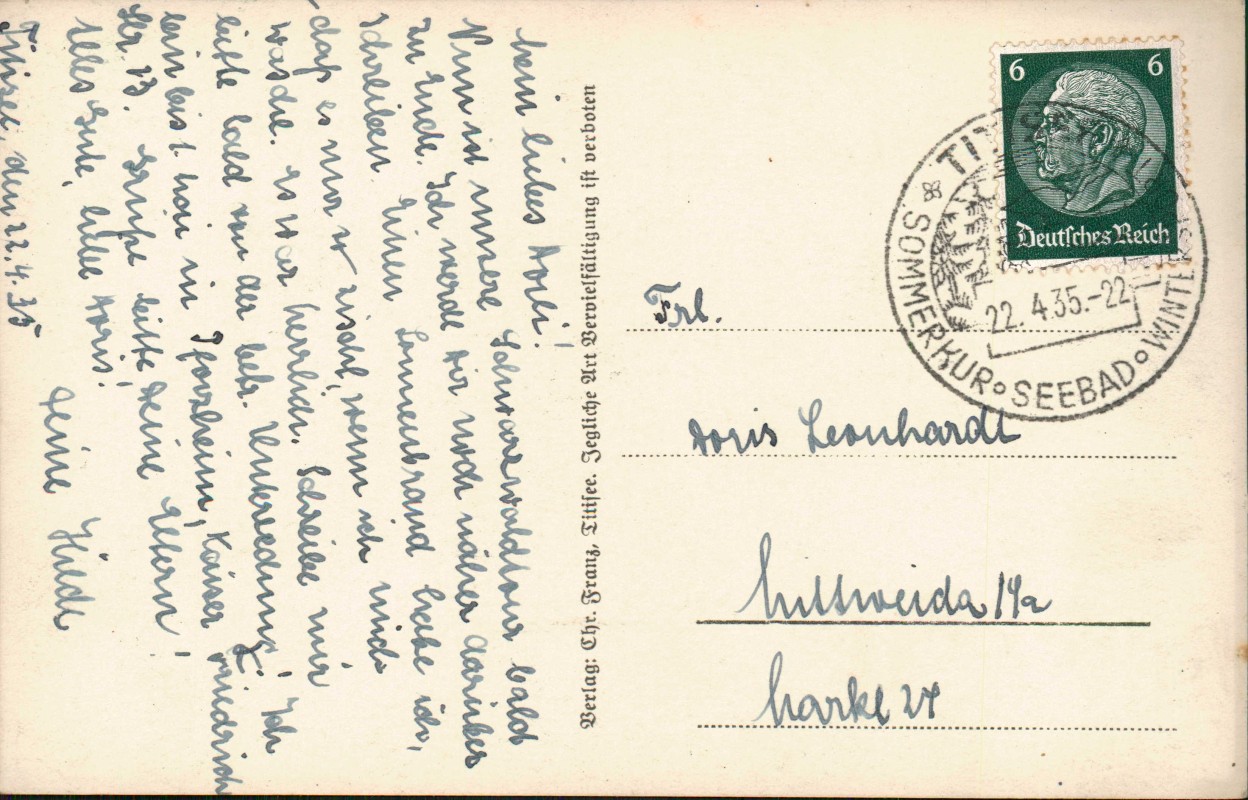 Mein liebes Dorli!
Nun ist unsere Schwarzwaldtour bald
zu Ende. Ich werde Dir noch näher darüber
schreiben. Einen Sonnenbrand habe ich,
daß es nur so zischt, wenn ich mich
wasche. Es war herrlich. Schreibe mir
bitte bald von der betr. Unterredung! Ich
bin bis 1. Mai in Pforzheim, Kaiser Friedrich
Str. 23. Grüße bitte Deine Eltern!
Alles Gute, liebe Doris!
Deine Hilde
Titisee, den 22.4.35
Verlag: Chr. Franz, Titisee. Jegliche Art Vervielfältigung ist verboten
6 6
Deutsches Reich
TITISEE
SOMMERKUR SEEBAD WINTER
22.4.35.-22
Frl.
Doris Leonhardt
Mittweida i/Sa
Markt 27